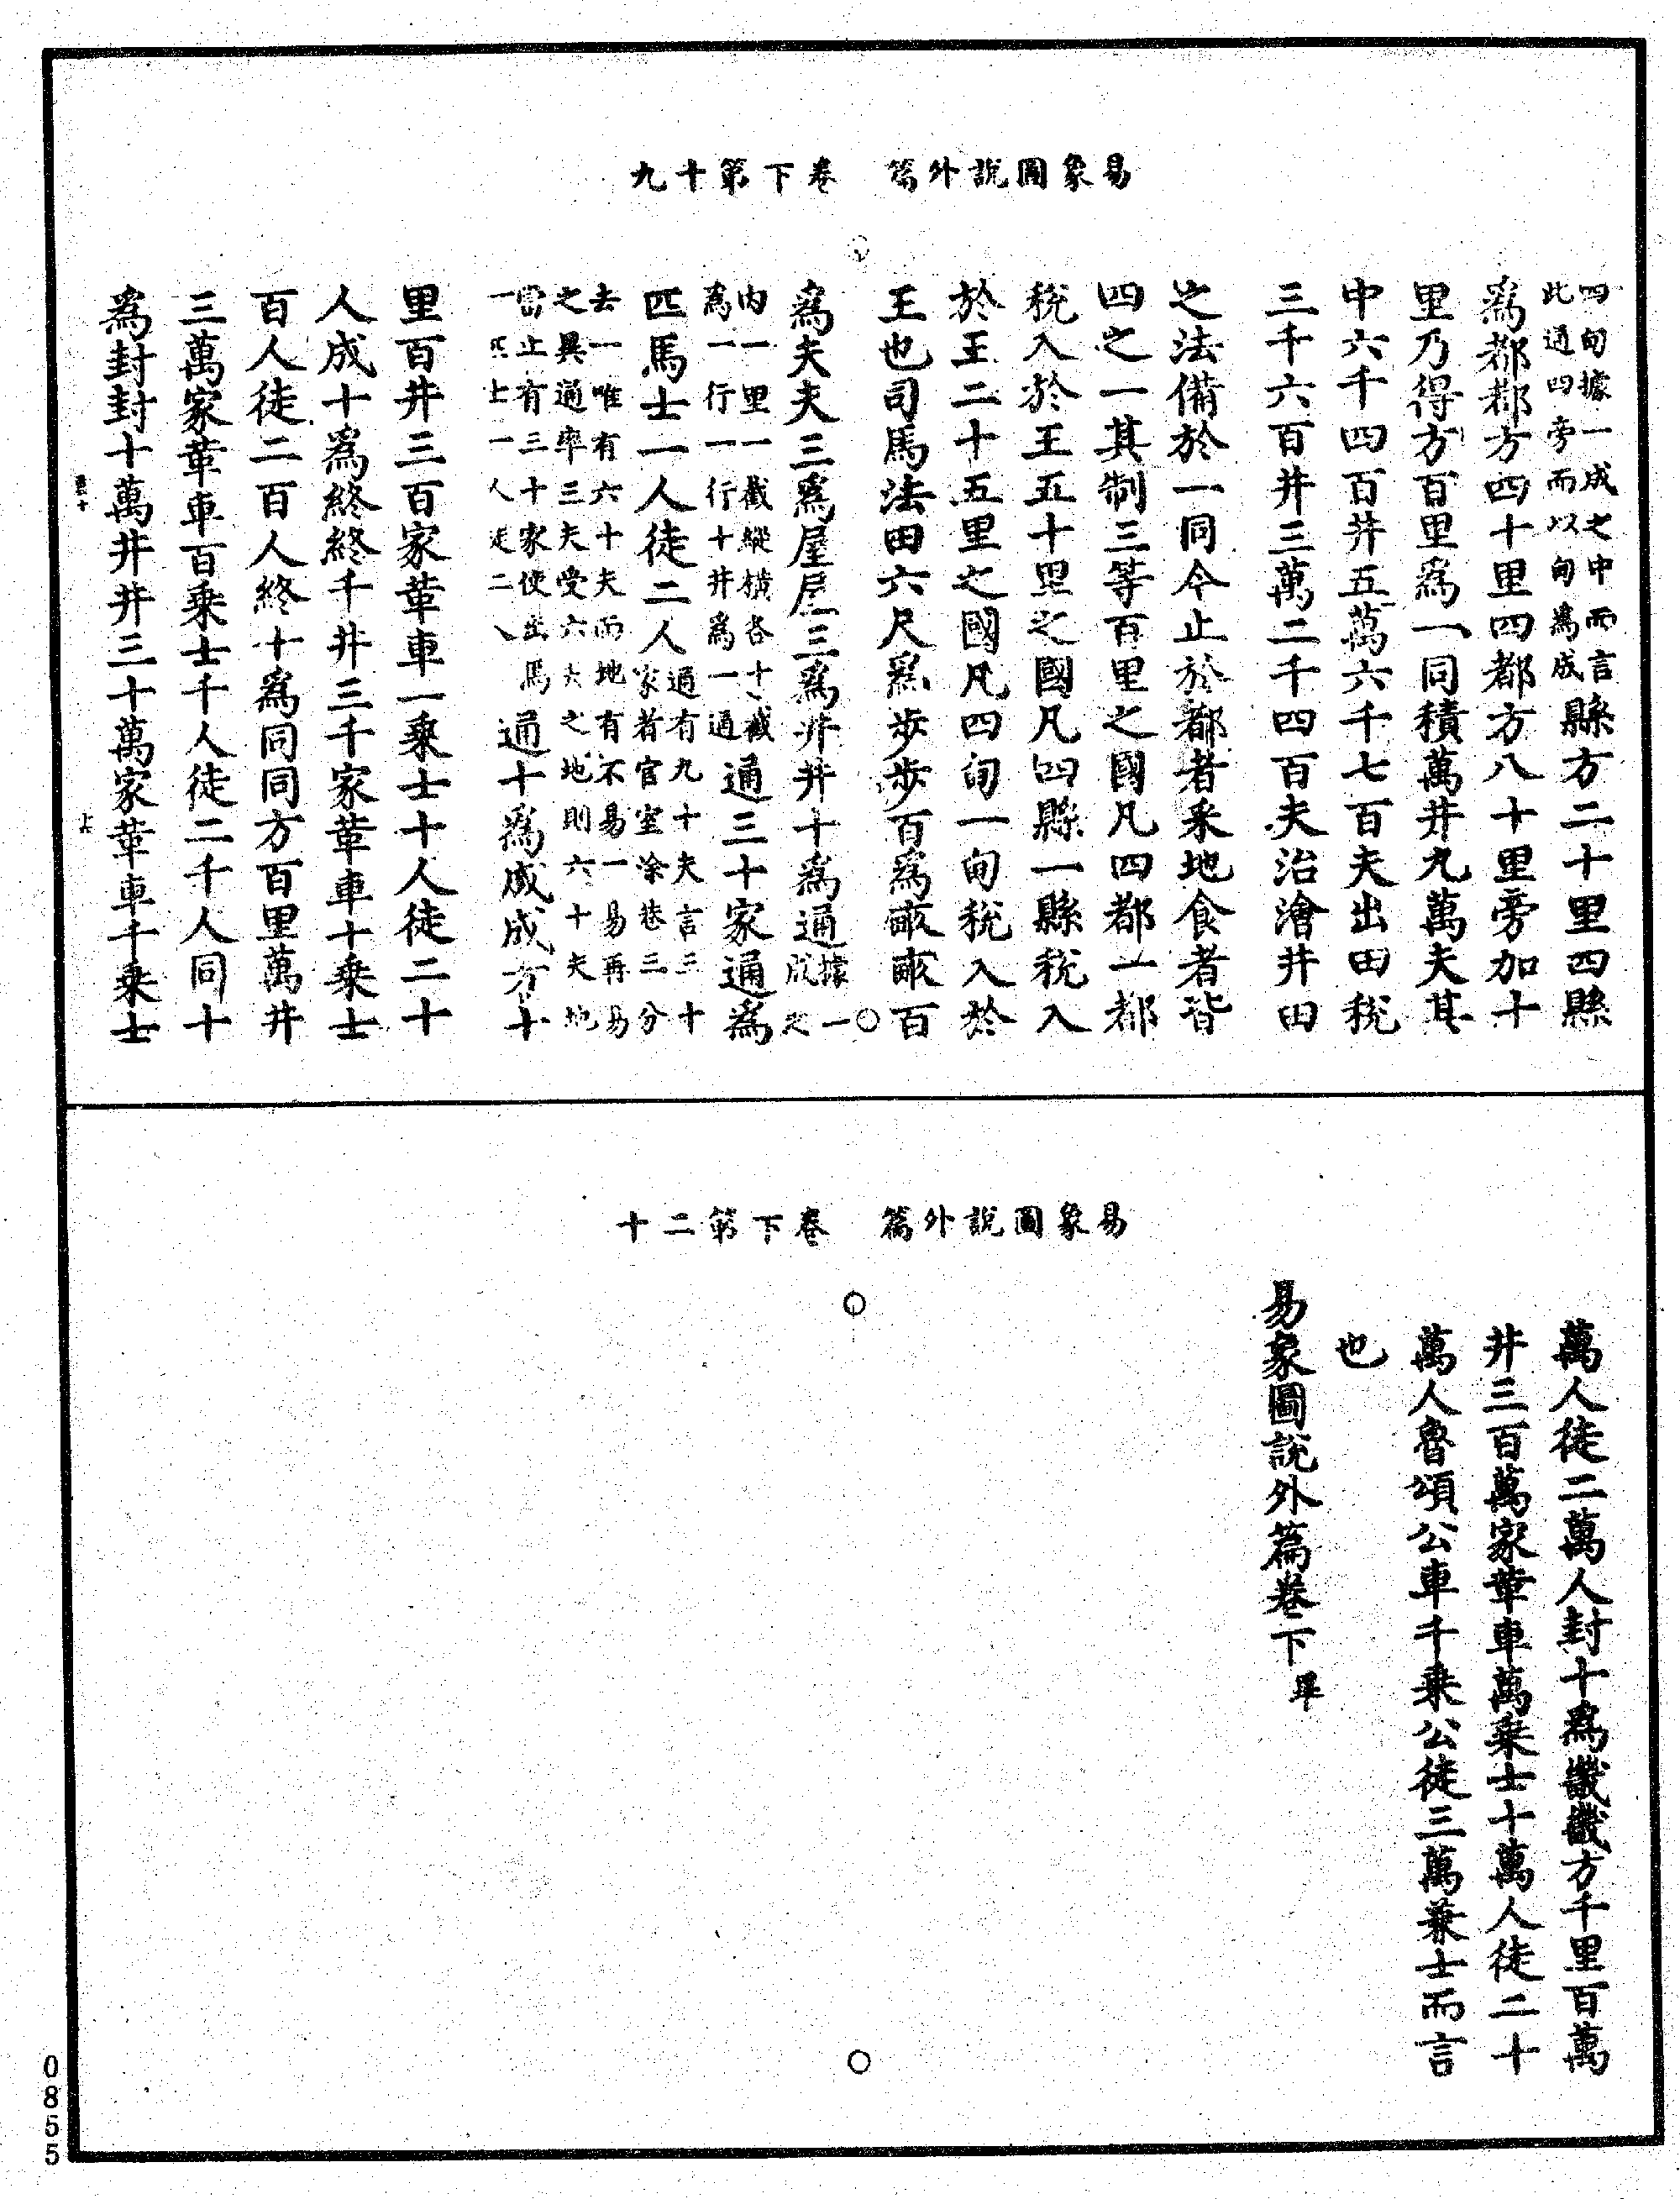 易象圖說外篇　卷下第十九
四甸據一成之中而言
此通四旁而以甸爲成
縣方二十里四縣
爲都都方四十里四都方八十里旁加十
里乃得方百里爲一同積萬井九萬夫其
中六千四百井五萬六千七百夫出田稅
三千六百井三萬二千四百夫治澮井田
之法備於一同今止於都者采地食者皆
四之一其制三等百里之國凡四都一都
稅入於王五十里之國凡四縣一縣稅入
於王二十五里之國凡四甸一甸稅入於
王也司馬法田六尺爲步步百爲畝畝百
爲夫夫三爲屋屋三爲井井十爲通
據一
成之
內一里一截縱橫各十截
爲一行一行十井爲一通
通三十家通爲
匹馬士一人徒二人
通有九十夫言三十
家者官室涂巷三分
去一唯有六十夫而地有不易一易再易
之異通率三夫受六夫之地則六十夫地
當止有三十家使出馬
一匹士一人徒二人
通十爲成成方十
里百井三百家革車一乘士十人徒二十
人成十爲終終千井三千家革車十乘士
百人徒二百人終十爲同同方百里萬井
三萬家革車百乘士千人徒二千人同十
爲封封十萬井井三十萬家革車千乘士
易象圖說外篇　卷下第二十
萬人徒二萬人封十爲畿畿方千里百萬
井三百萬家革車萬乘士十萬人徒二十
萬人魯頌公車千乘公徒三萬兼士而言
也
易象圖說外篇卷下
畢
0855